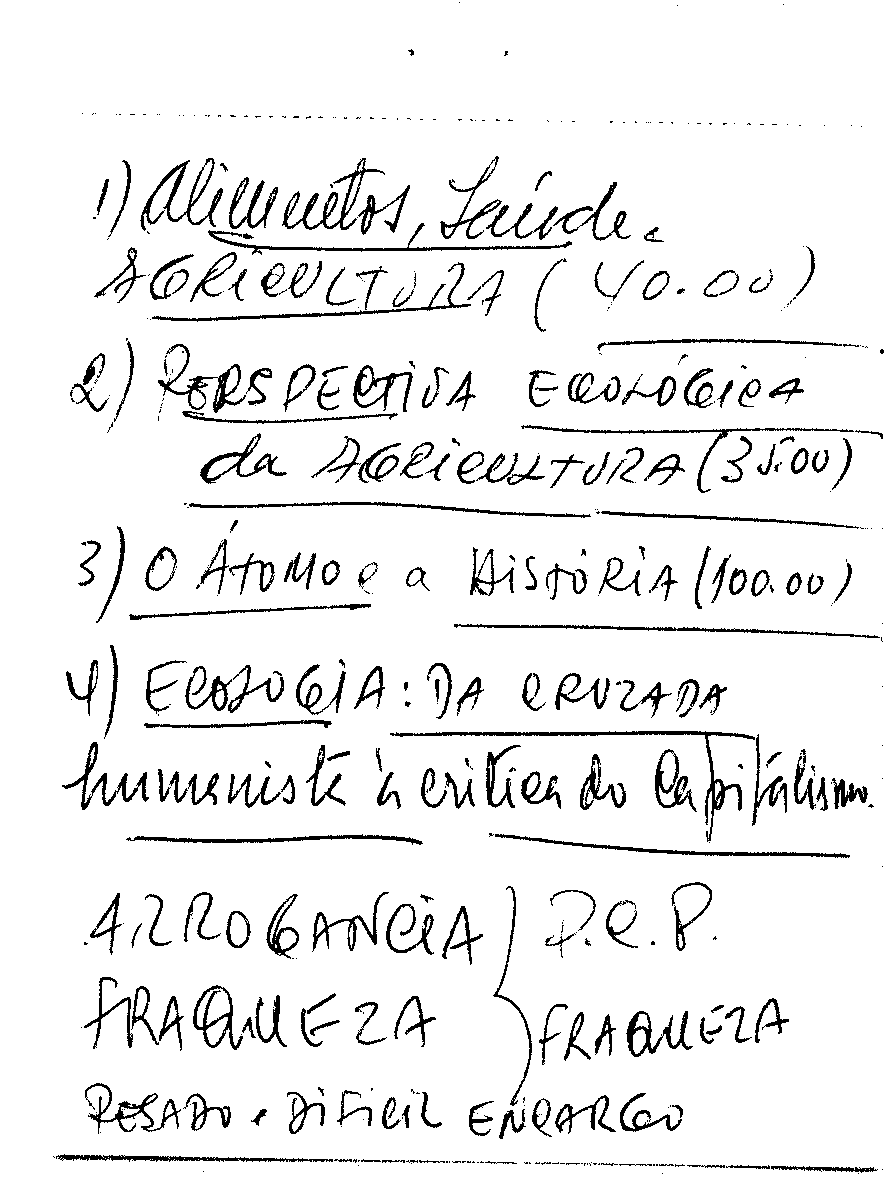 1) Alimentos, Saúde e
AGRICULTURA (40.00)
2) PERSPECTIVA ECOLÓGICA
da AGRICULTURA (35.00)
3) O ÁTOMO e a HISTÓRIA (100.00)
4) ECOLOGIA: DA CRUZADA
humanista à crítica do Capitalismo.
ARROGANCIA } P.C.P.
FRAQUEZA FRAQUEZA
PESADO e DIFICIL ENCARGO